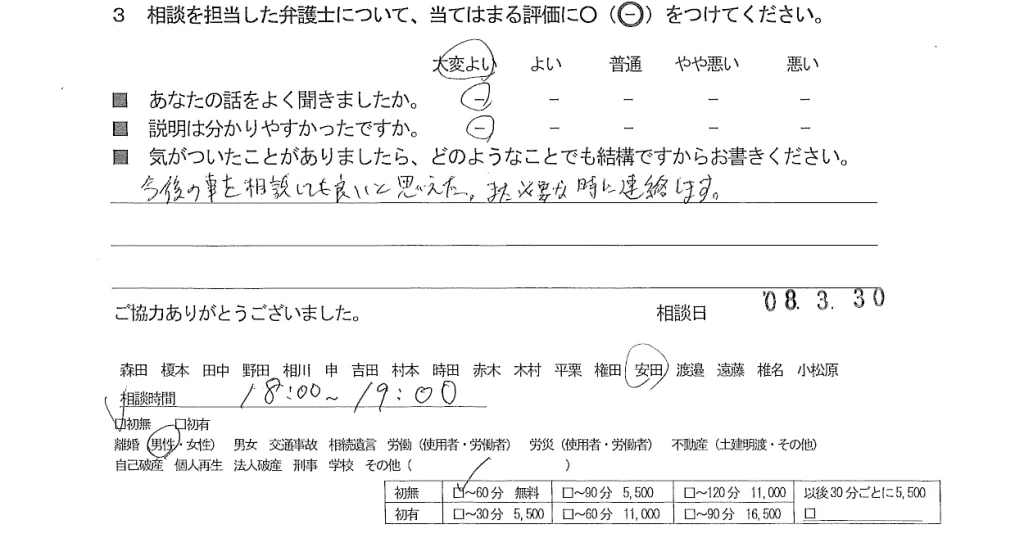 3 相談を担当した弁護士について、当てはまる評価に○(㊀)をつけてください。
大変よい よい 普通 やや悪い 悪い
■ あなたの話をよく聞きましたか。 － － － － －
■ 説明は分かりやすかったですか。 － － － － －
■ 気がついたことがありましたら、どのようなことでも結構ですからお書きください。
今後の事を相談しても良いと思えた。また必要な時に連絡します。
ご協力ありがとうございました。 相談日 '08.3.30
森田 榎本 田中 野田 相川 申 吉田 村本 時田 赤木 木村 平栗 権田 安田 渡邉 遠藤 椎名 小松原
相談時間 18:00～19:00
□初無 □初有
離婚(男性・女性) 男女 交通事故 相続遺言 労働(使用者・労働者) 労災(使用者・労働者) 不動産(土建明渡・その他)
自己破産 個人再生 法人破産 刑事 学校 その他( )
初無 □～60分 無料 □～90分 5,500 □～120分 11,000 以後30分ごとに5,500
初有 □～30分 5,500 □～60分 11,000 □～90分 16,500 □